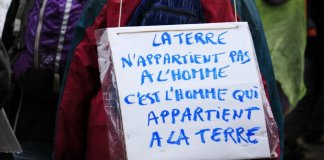 LA TERRE
N'APPARTIENT PAS
A L'HOMME
C'EST L'HOMME QUI
APPARTIENT
A LA TERRE